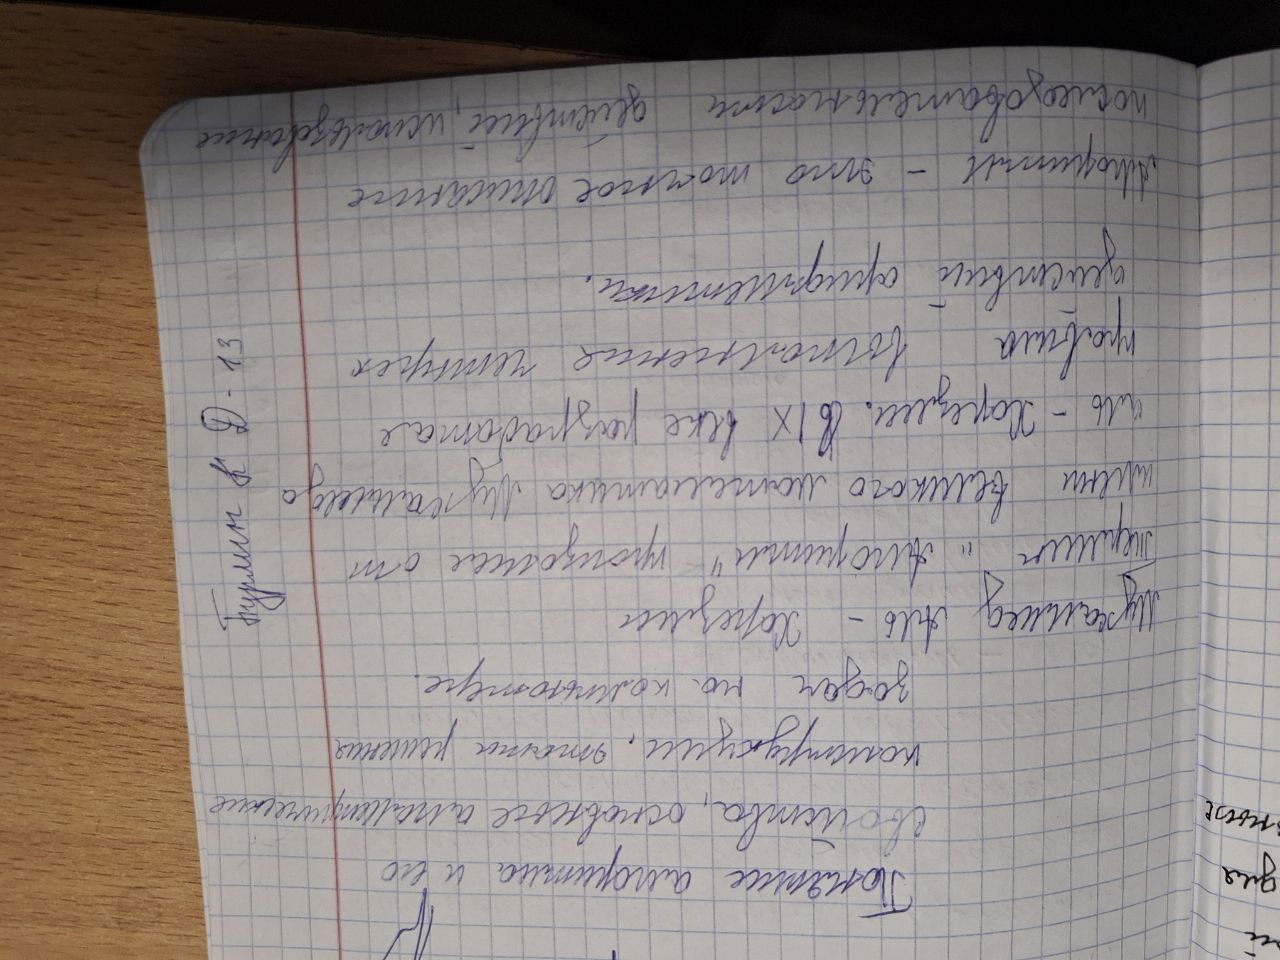 Понятие алгоритма и его
свойства, основные алгоритмические
конструкции. этапы решения
задач на компьютере.
Мухаммед Аль - Хорезми
Термин "Алгоритм" произошел от
имени великого математика Мухаммеда
аль - Хорезми. В IX веке разработал
правила выполнения четырех
действий арифметики.
Алгоритм - это точное описание
последовательности действий, использование
Бурмин К Д - 13
для